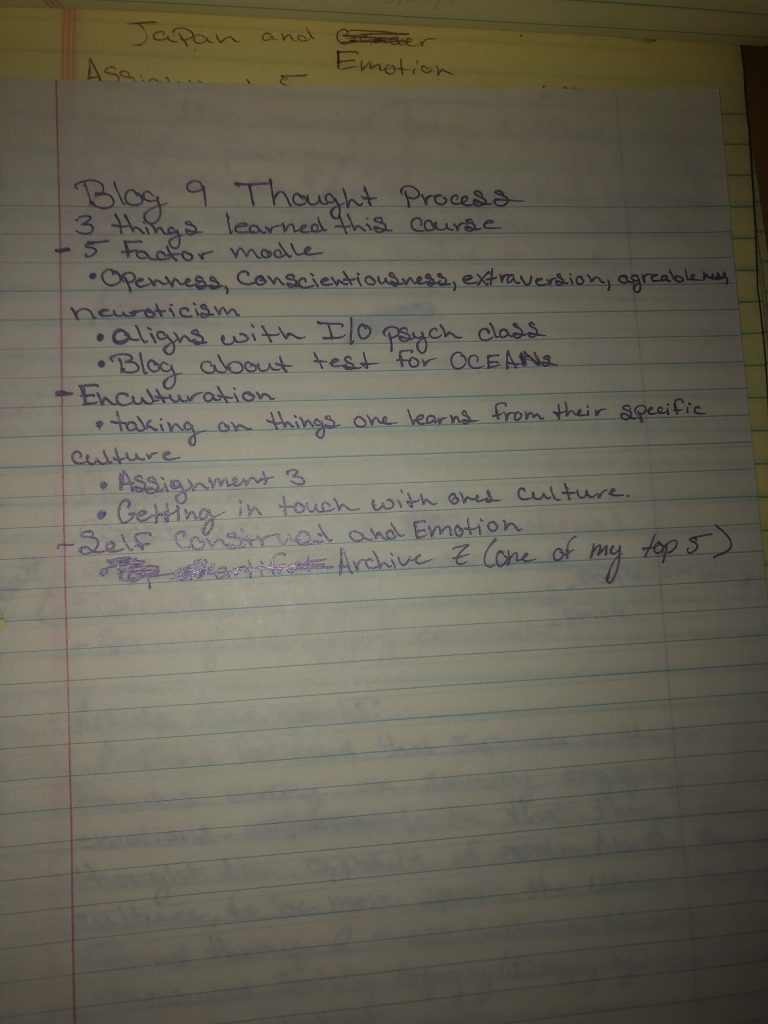 Japan and
Emotion
Blog 9 Thought Process
3 things learned this course
- 5 factor modle
• Openness, Conscientiousness, extraversion, agreableness,
neuroticism
• aligns with I/O psych class
• Blog about test for OCEANs
- Enculturation
• taking on things one learns from their specific
culture
• Assignment 3
• Getting in touch with ones culture.
- Self Construal and Emotion
• Archive Z (one of my top 5)